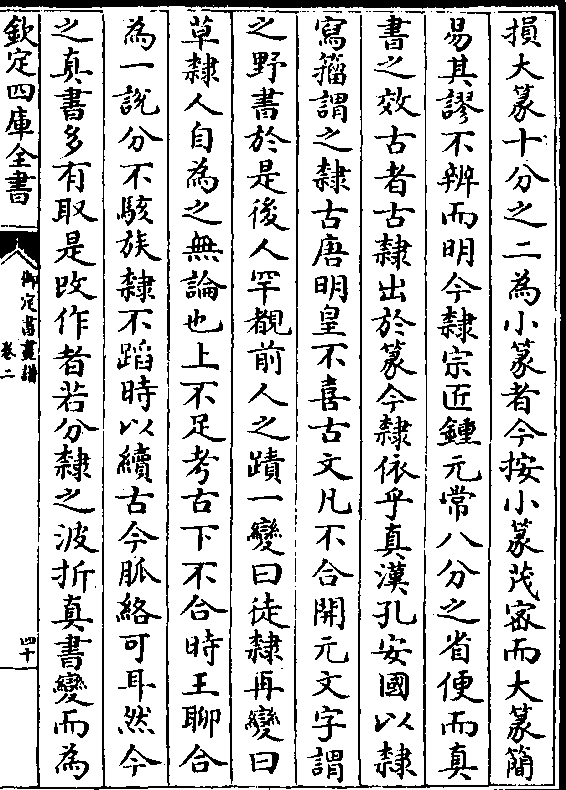 損大篆十分之二為小篆者今按小篆茂宻而大篆簡
易其謬不辨而明今隸宗匠鍾元常八分之省便而真
書之效古者古隸出於篆今隸依乎真漢孔安國以隸
寫籀謂之隸古唐明皇不喜古文凡不合開元文字謂
之野書於是後人罕覩前人之蹟一變曰徒隸再變曰
草隸人自為之無論也上不足考古下不合時王聊合
為一說分不駭族隸不蹈時以續古今脈絡可耳然今
之真書多有取是改作者若分隸之波折真書變而為
欽定四庫全書
御定書畫譜
卷二
四十